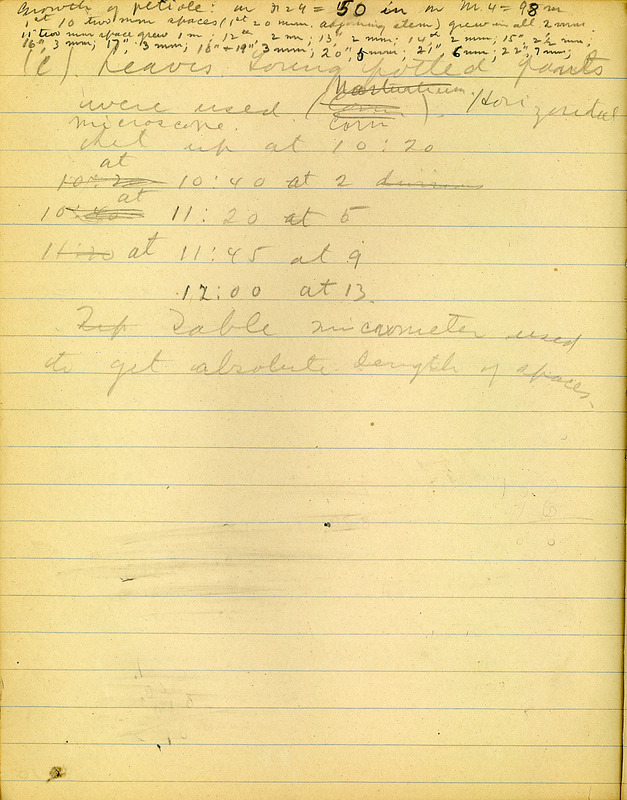 Growth of petiole: on n 24 = 50 in on M. 4 = 98 m
1st 10 two mm spaces (1st 20 mm. adjoining stem) grew in all 2 mm.
11" two mm space grew 1 m; 12th, 2 mm; 13", 2 mm; 14th 2 mm; 15" 2½ mm.
16", 3 mm; 17", 3 mm; 18" + 19", 3 mm; 20", 5 mm; 21", 6 mm; 22", 7 mm;
(c) Leaves young potted plants
Nasturtium
were used (Corn). Horizontal
microscope. Corn
Set up at 10:20
at
10:20 10:40 at 2
at
10:40 11:20 at 5
11:20 at 11:45 at 9
12:00 at 13.
Table micrometer used
to get absolute length of spaces.